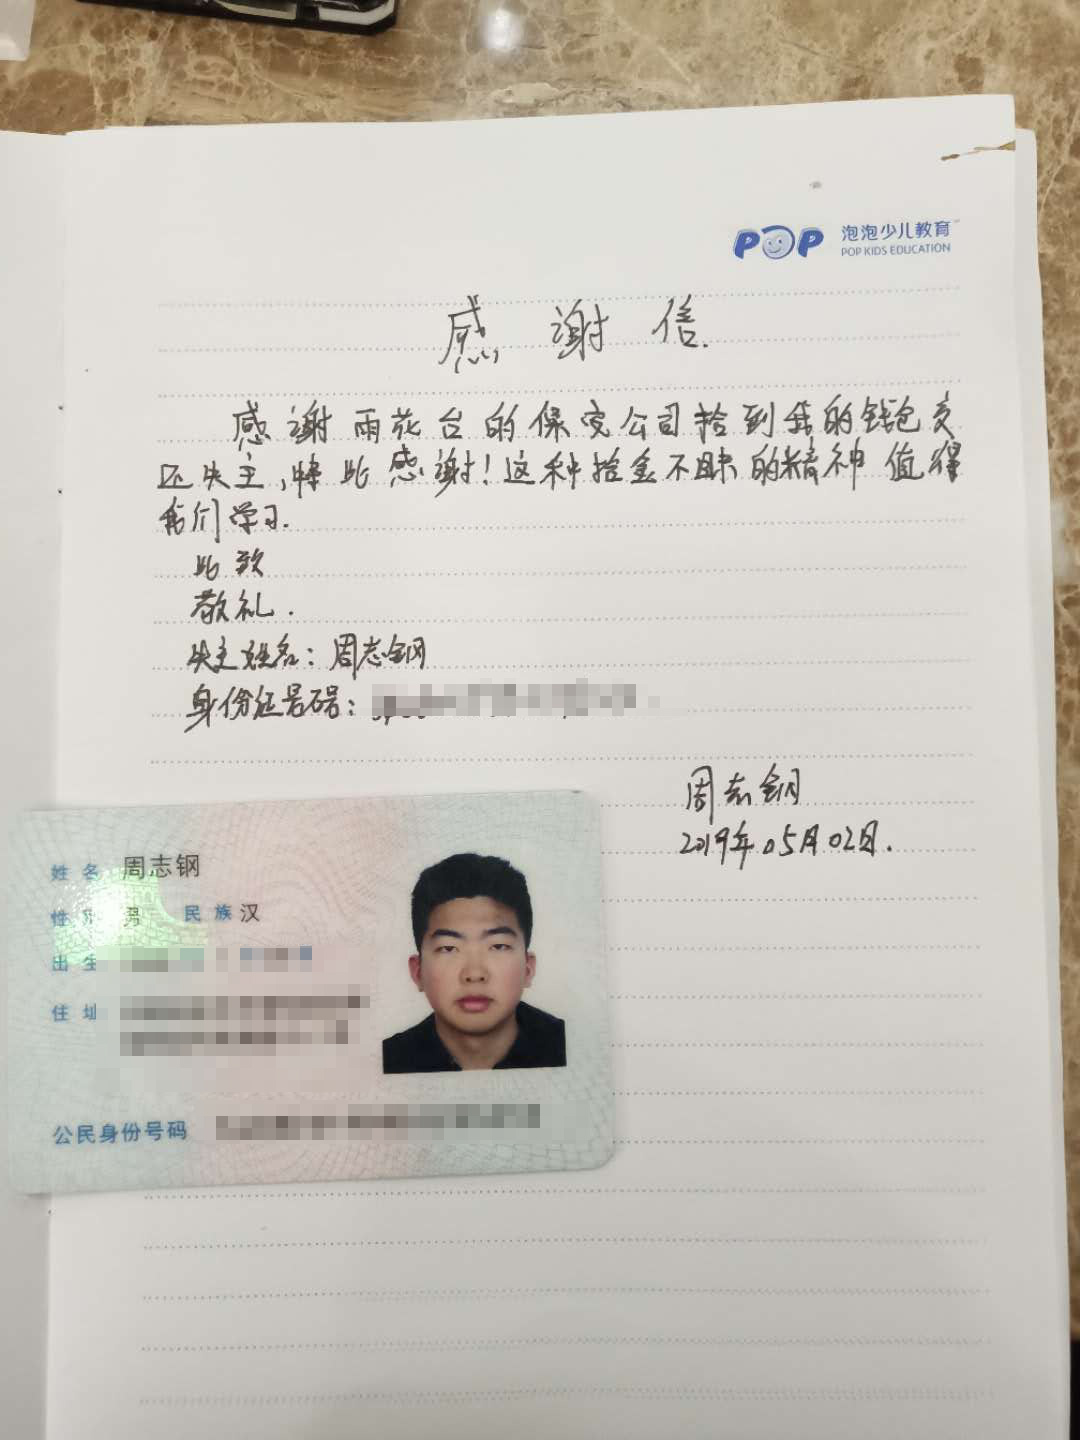 POP 泡泡少儿教育
POP KIDS EDUCATION
感谢信.
感谢雨花台的保安公司拾到我的钱包交
还失主,特此感谢!这种拾金不昧的精神值得
我们学习.
此致
敬礼.
失主姓名:周志钢
身份证号码:
周志钢
2019年05月02日.
姓名 周志钢
性别 男 民族 汉
出生
住址
公民身份号码